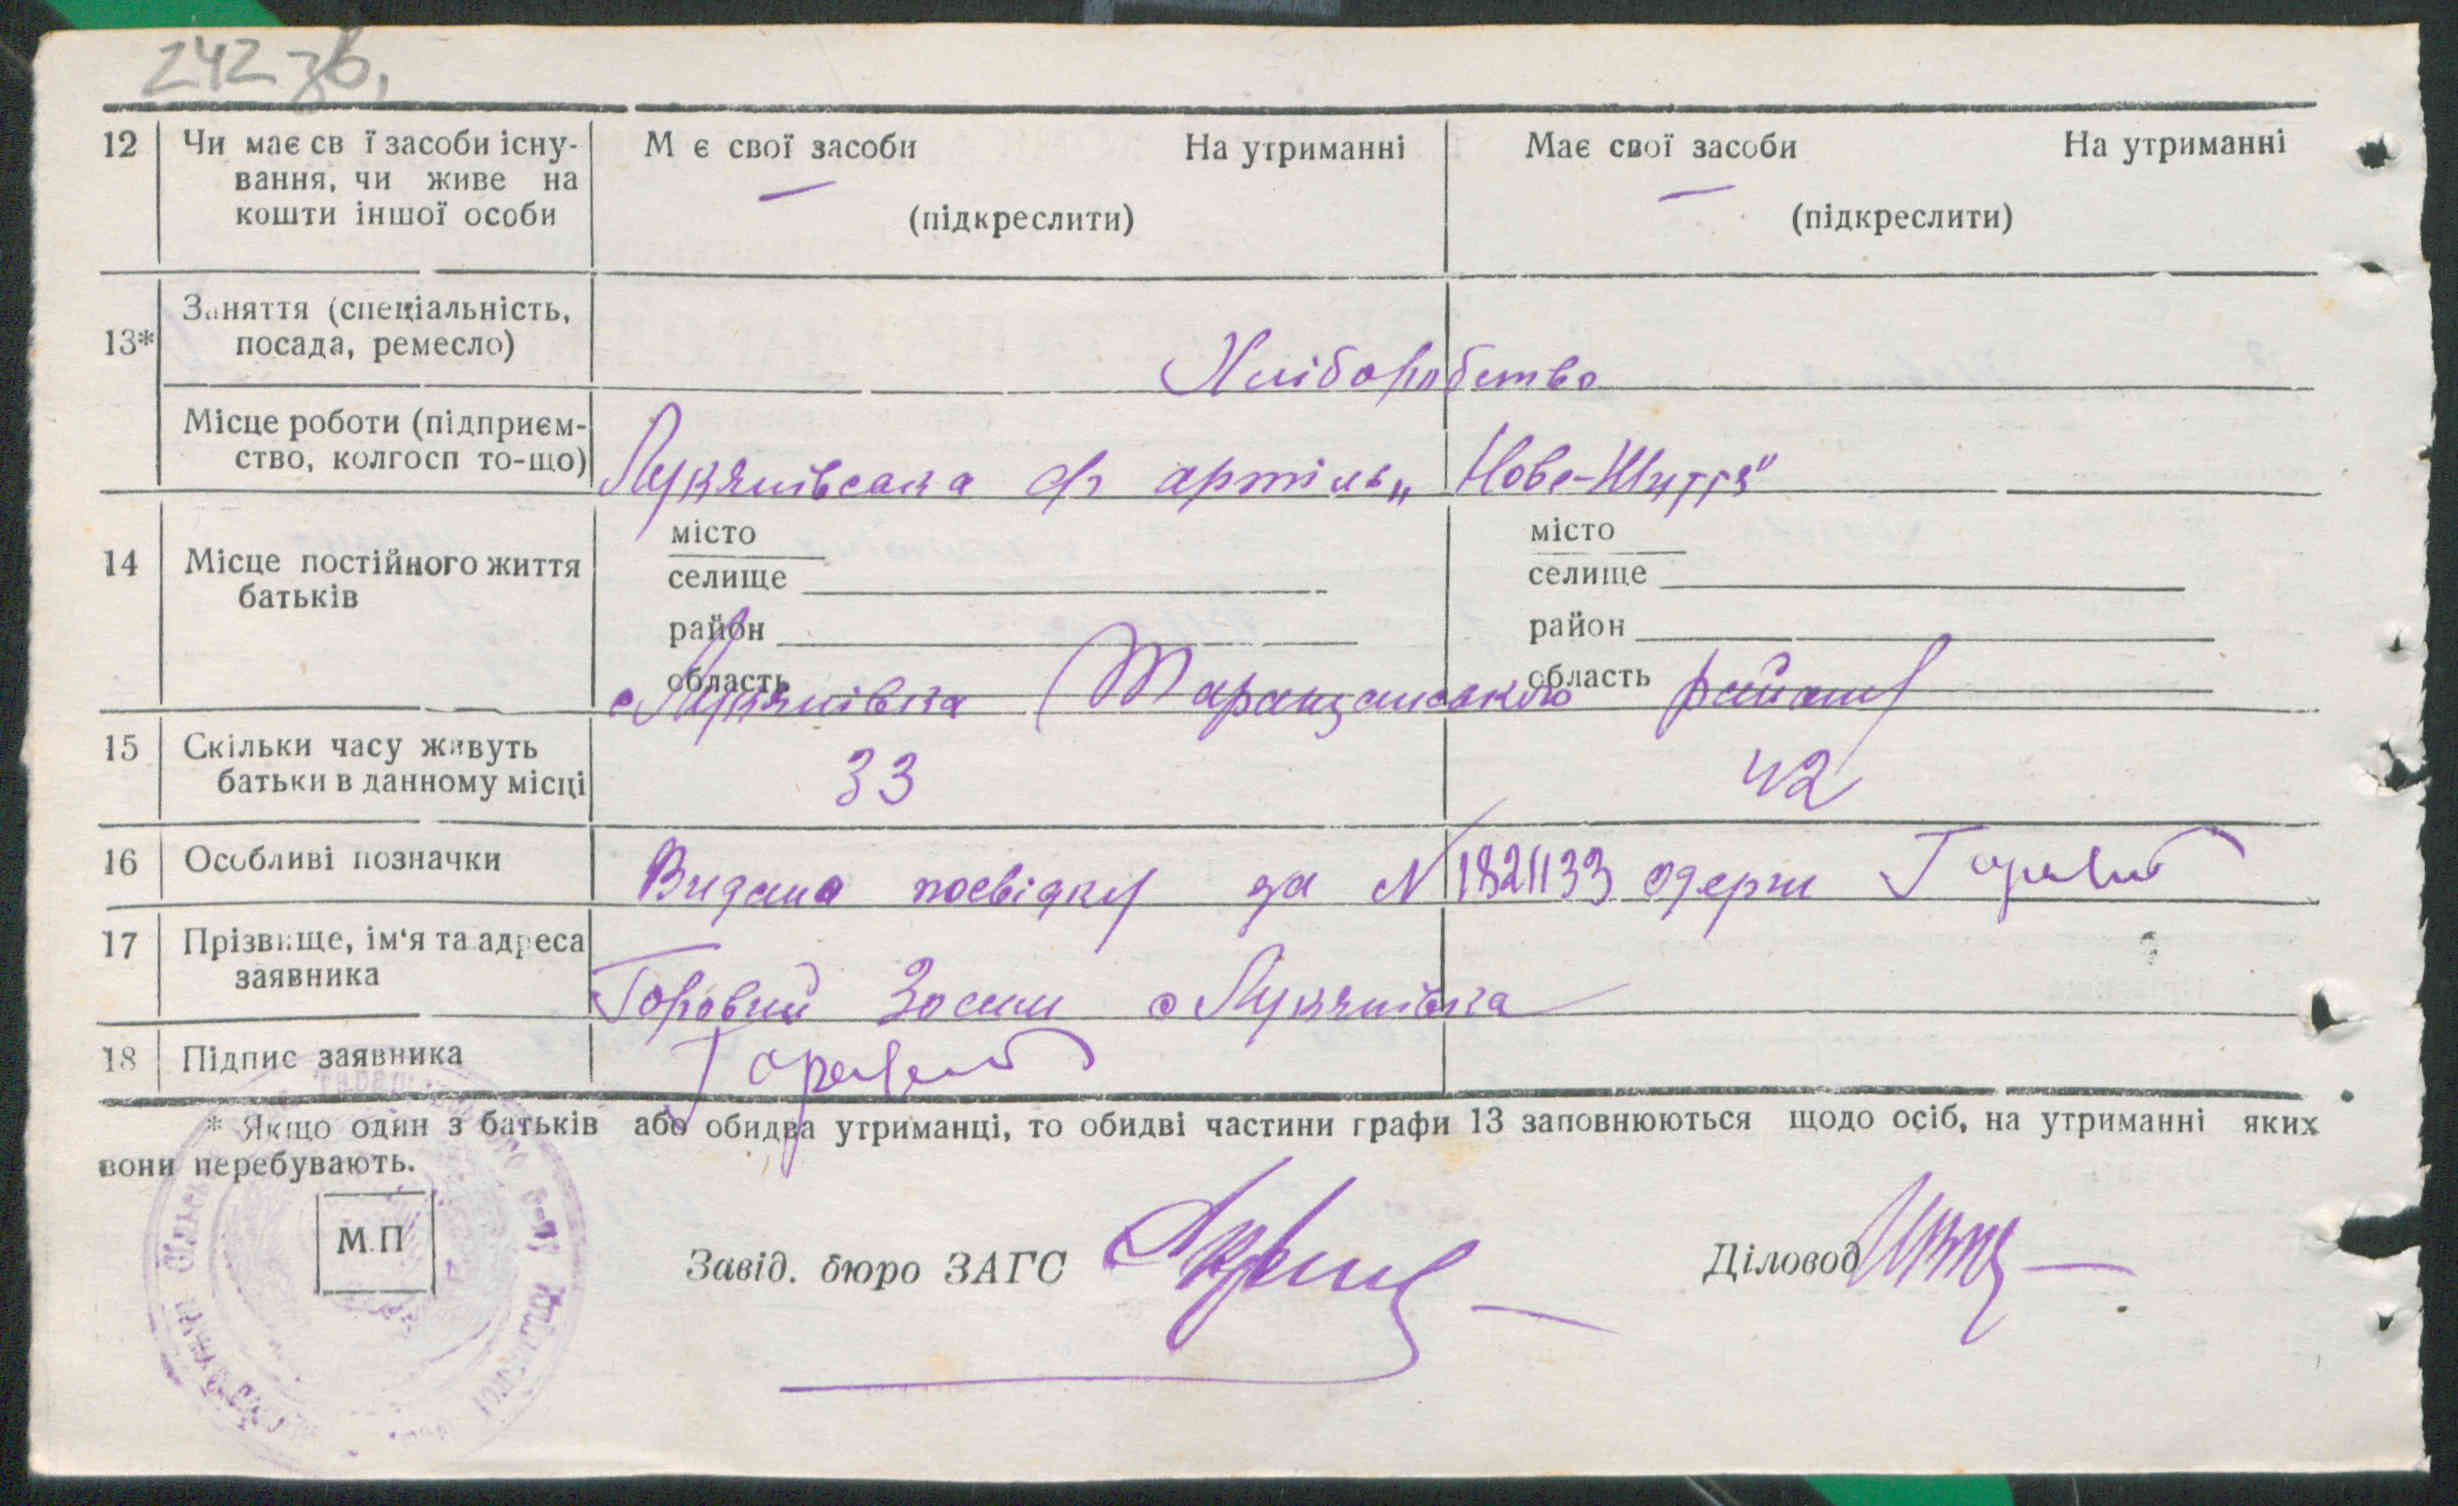 242 зв.
12 Чи має св ї засоби існу- М є свої засоби На утриманні Має свої засоби На утриманні
вання, чи живе на
кошти іншої особи (підкреслити) (підкреслити)
13* Заняття (спеціальність,
посада, ремесло) Хліборобство
Місце роботи (підприєм-
ство, колгосп то-що) Лукянівська с/г артіль „Нове-Життя"
14 Місце постійного життя батьків
місто місто
селище селище
район район
область область
с Лукянівка Таращанського району
15 Скільки часу живуть
батьки в данному місці 33 42
16 Особливі позначки Видана посвідку за N 1821133 одерж Горовий
17 Прізвище, ім'я та адреса
заявника Горовий Зосим с Лукянівка
18 Підпис заявника Горовий
* Якщо один з батьків або обидва утриманці, то обидві частини графи 13 заповнюються щодо осіб, на утриманні яких
вони перебувають.
М.П
Завід. бюро ЗАГС Діловод